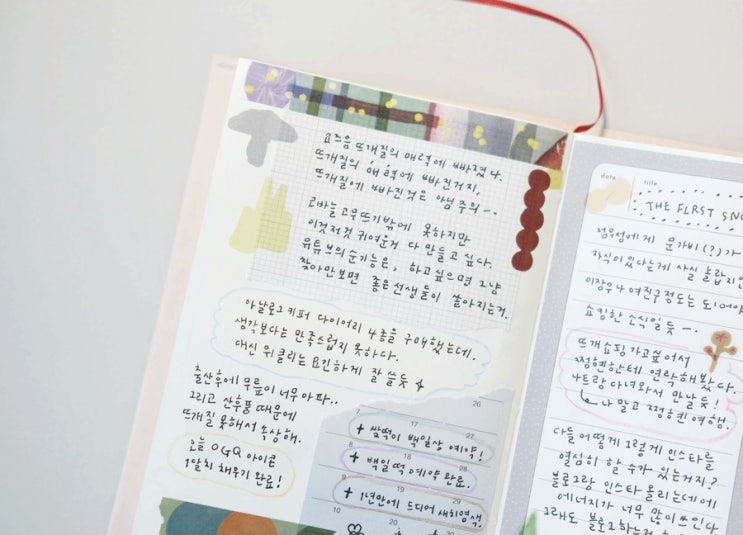 요즈음 뜨개질의 매력에 빠졌다.
뜨개질의 매력에 빠진거지,
뜨개질에 빠진것은 아님 주의-.
코바늘 고무뜨기밖에 못하지만
이것저것 귀여운거 다 만들고 싶다.
유튜브의 순기능은, 하고싶으면 그냥
찾아만보면 좋은 선생들이 쏟아지는거.
아날로그키퍼 다이어리 4종을 구매했는데.
생각보다는 만족스럽지 못하다.
대신 위클리는 요긴하게 잘 쓸듯
출산후에 무릎이 너무 아파..
그리고 산후풀 때문에
뜨개질 못해서 속상해.
오늘 OGQ 아이콘
1달치 채우기 완료!
26
7 17 27
+ 쌀떡이 백일상 예약!
8 18 28
+ 백일떡 예약 완료.
9 19 29
+ 1년만에 드디어 새치염색.
10 20 30
date title
THE FIRST SNO
정우성에게 문가비(?)가
자식이 있다는게 사실 놀랍지만
이장우나 여진구정도는 되어야
쇼킹한 소식일듯-.
뜨개쇼핑가고싶어서
쩡현한테 연락해봤다.
4트랑 다녀와서 만날듯!
나 말고 쩡현퀸 여행.
다들 어떻게 그렇게 인스타를
열심히 할 수가 있는거지?
블로그랑 인스타 올리는데에
에너지가 너무 많이 쓰인다
그래도 블로그하는거